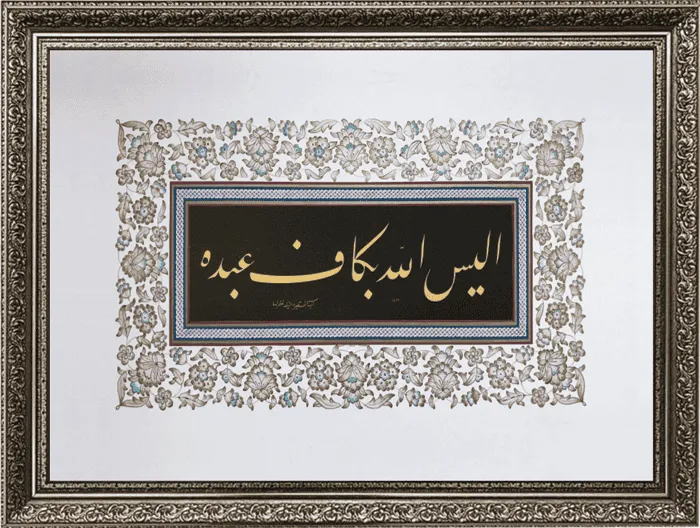 الیس الله بکاف عبده